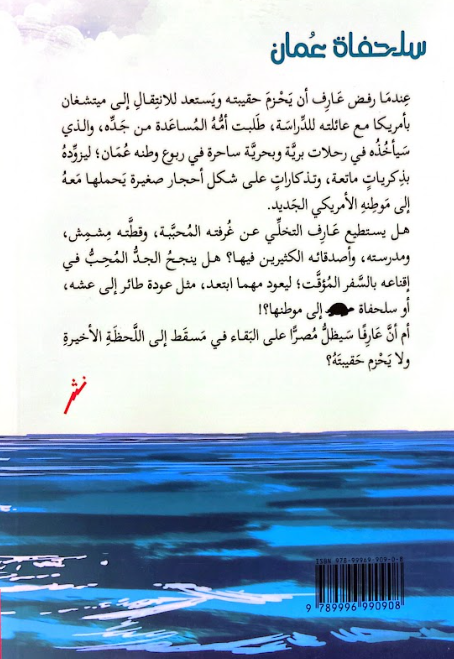 سلحفاة عُمان
عِندمَا رفض عَارِف أن يَحْزمَ حقيبته ويَستعد للانتِقالِ إلى ميتشغان
بأمريكا مع عائلته للدِّراسَة، طَلبت أمُّهُ المسَاعَدة من جَدِّه، والذي
سَيأخُذُه في رحلات بريَّة وبحريَّة ساحرة في ربوع وطنه عُمَان؛ ليزوِّدهُ
بذِكرياتٍ ماتعة، وتذكاراتٍ على شكل أحجار صغيرة يَحملها مَعهُ
إلى مَوطِنهِ الأمريكي الجَديد.
هل يستطيع عَارِف التخلِّي عن غُرفته المُحبَّبة، وقطَّته مِشمِش،
ومدرسته، وأصدقائه الكثيرين فيها؟ هل ينجحُ الجدُّ المُحِبُّ في
إقناعه بالسَّفر المُؤقَّت؛ ليعود مهما ابتعد، مثل عودة طائر إلى عشه،
أو سلحفاة إلى موطنها؟!
أم أنَّ عَارِفًا سَيظلُّ مُصرًّا على البَقاء في مَسقَط إلى اللَّحظَةِ الأخيرةِ
ولا يَحْزم حَقيبتَهُ؟
نثر
ISBN 978-99969-909-0-8
9 789996 990908